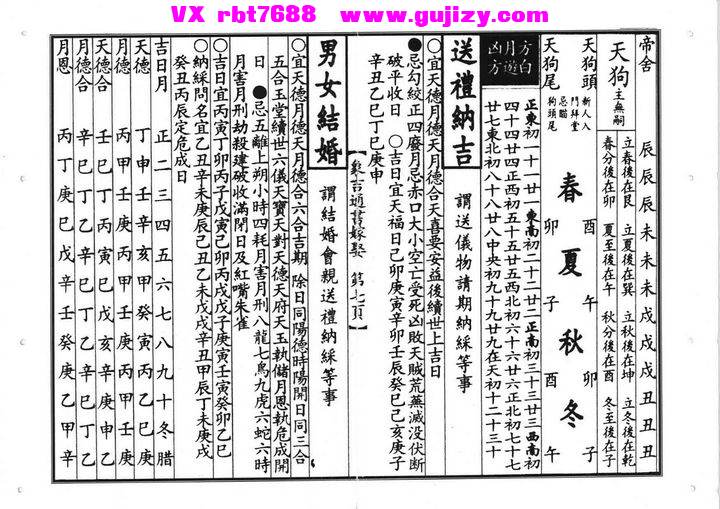 VX rbt7688 www.gujizy.com
帝舍 辰辰辰未未未戌戌戌丑丑丑
天狗 主無嗣
立春後在艮 立夏後在巽 立秋後在坤 立冬後在乾
春分後在卯 夏至後在午 秋分後在酉 冬至後在子
天狗頭 新人入門拜堂 酉午卯子
春夏秋冬
天狗尾 忌踏狗頭尾 卯子酉午
正東初一十一廿一 東南初二十二廿二 正南初三十三廿三 西南初
四十四廿四 正西初五十五廿五 西北初六十六廿六 正北初七十七
廿七 東北初八十八廿八 中央初九十九廿九 在天初十二十三十
送禮納吉 謂送儀物請期納綵等事
○宜天德月德天月德合天喜要安益後續世上吉日
●忌勾絞正四廢月忌赤口大小空亡受死凶敗天賊荒蕪滅没伏斷
破平收日 ○吉日宜天福日己卯庚寅辛卯壬辰癸巳己亥庚子
辛丑乙巳丁巳庚申
【象吉通書嫁娶 第七頁】
男女結婚 謂結婚會親送禮納綵等事
○宜天德月德天月德合六合吉期 除日同陽德時陽開日同三合
五合玉堂續世六儀天寶天對天德天府天玉執儲月恩執危成開
日 ●忌五離上朔小時四耗月害月刑八龍七鳥九虎六蛇六時
月害月刑劫殺建破收滿閉日及紅嘴朱雀
○吉日宜丙寅丁卯丙子戊寅己卯丙戌戊子庚寅壬寅癸卯乙巳
○納綵問名宜乙丑辛未庚辰己丑乙未戊戌辛丑甲辰丁未庚戌
癸丑丙辰定危成日
吉日月 正二三四五六七八九十冬臘
天德 丁申壬辛亥甲癸寅丙乙巳庚
月德 丙甲壬庚丙甲壬庚丙甲壬庚
天德合 壬巳丁丙寅己戊亥辛庚申乙
月德合 辛己丁乙辛己丁乙辛己丁乙
月恩 丙丁庚己戊辛壬癸庚乙甲辛